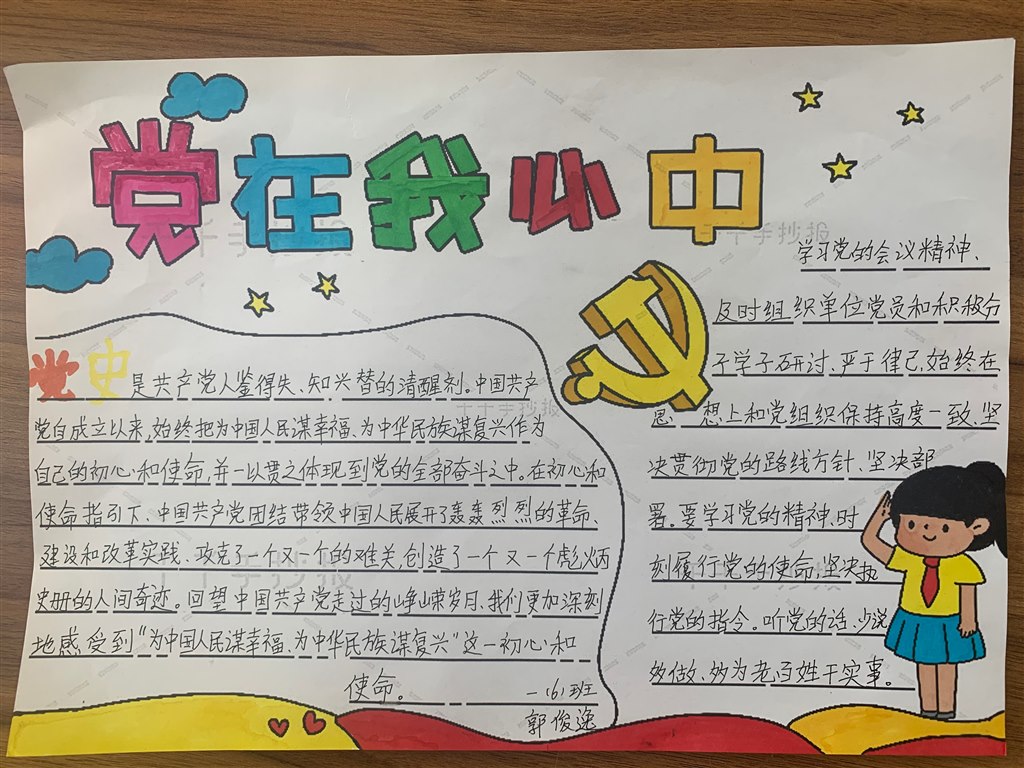 党在我心中
党史是共产党人鉴得失、知兴替的清醒剂。中国共产
党自成立以来,始终把为中国人民谋幸福、为中华民族谋复兴作为
自己的初心和使命,并一以贯之体现到党的全部奋斗之中。在初心和
使命指引下、中国共产党团结带领中国人民展开了轰轰烈烈的革命、
建设和改革实践、攻克了一个又一个的难关,创造了一个又一个彪炳
史册的人间奇迹。回望中国共产党走过的峥嵘岁月、我们更加深刻
地感受到“为中国人民谋幸福、为中华民族谋复兴”这一初心和
使命。
一(6)班
郭俊逸
学习党的会议精神、
及时组织单位党员和积极分
子学子研讨、严于律己,始终在
思想上和党组织保持高度一致、坚
决贯彻党的路线方针、坚决部
署。要学习党的精神、时
刻履行党的使命,坚决执
行党的指令。听党的话、少说
多做、多为老百姓干实事。
千千手抄报
千千手抄报
千千手抄报